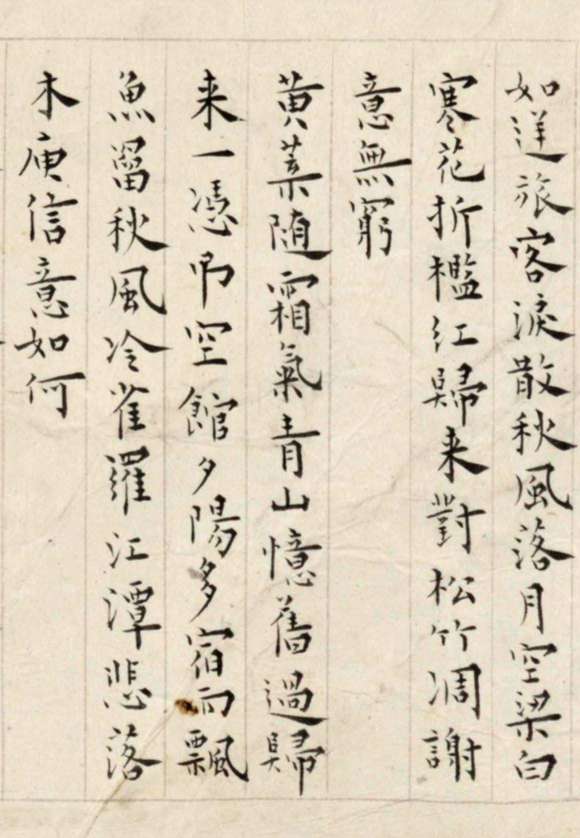 如逆旅客淚散秋風落月空梁白
寒花折檻紅歸来對松竹凋謝
意無窮
黄葉随霜氣青山憶舊過歸
来一憑吊空館夕陽多宿雨飄
魚罶秋風冷雀羅江潭悲落
木庾信意如何